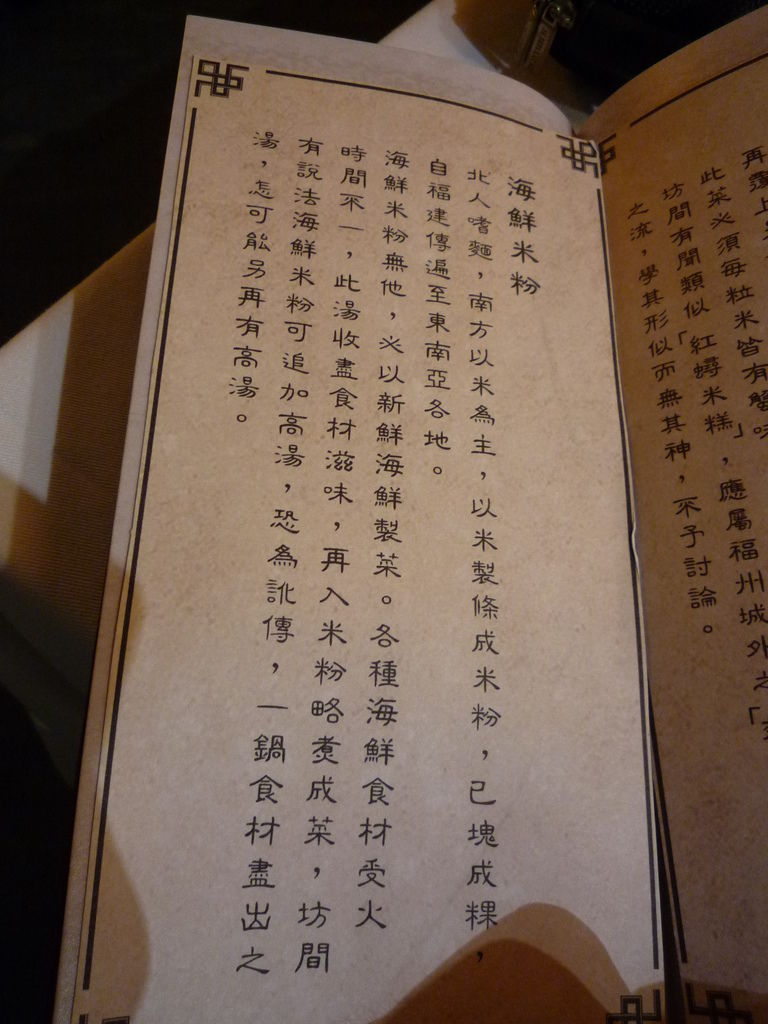 再覆上
此菜必須每粒米皆有蟹味。
坊間有聞類似「紅蟳米糕」，應屬福州城外之「
之流，學其形似而無其神，不予討論。
海鮮米粉
北人嗜麵，南方以米為主，以米製條成米粉，已塊成粿，
自福建傳遍至東南亞各地。
海鮮米粉無他，必以新鮮海鮮製菜。各種海鮮食材受火
時間不一，此湯收盡食材滋味，再入米粉略煮成菜，坊間
有說法海鮮米粉可追加高湯，恐為訛傳，一鍋食材盡出之
湯，怎可能另再有高湯。